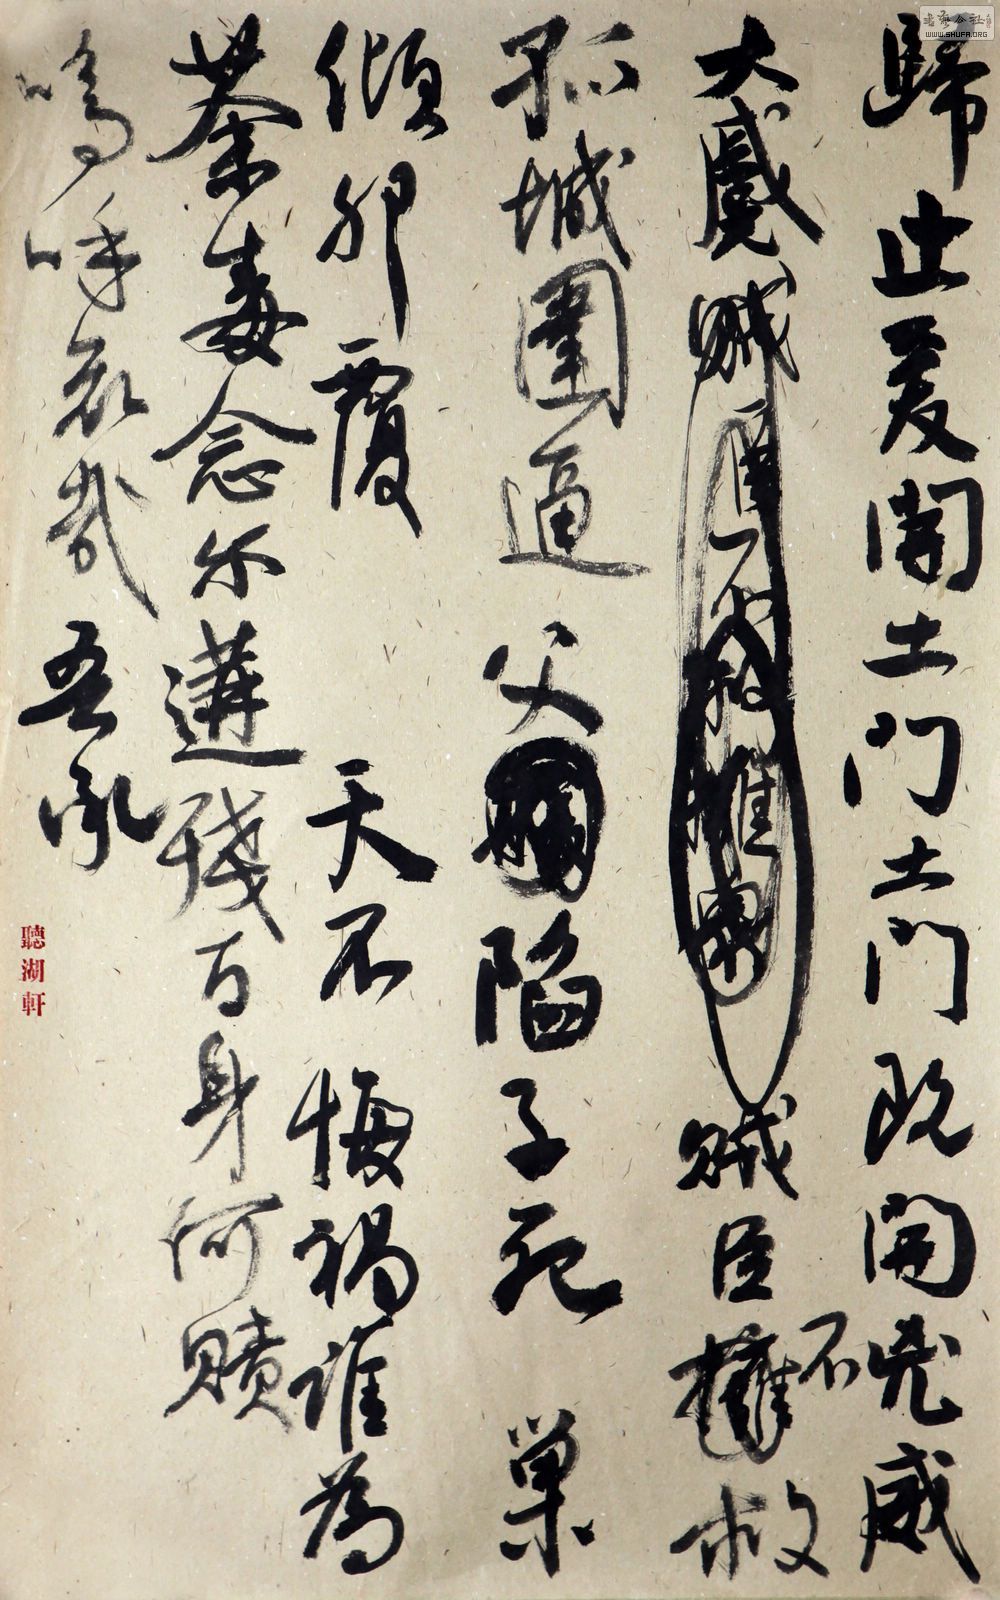 歸止爰開土門土門既開兇威
大蹙賊臣擁救賊臣擁不救
孤城圍逼父陷子死巢
傾卵覆天不悔禍誰為
荼毒念尔遘殘百身何贖
嗚呼哀哉吾承
聽湖軒
WWW.SHUFA.ORG